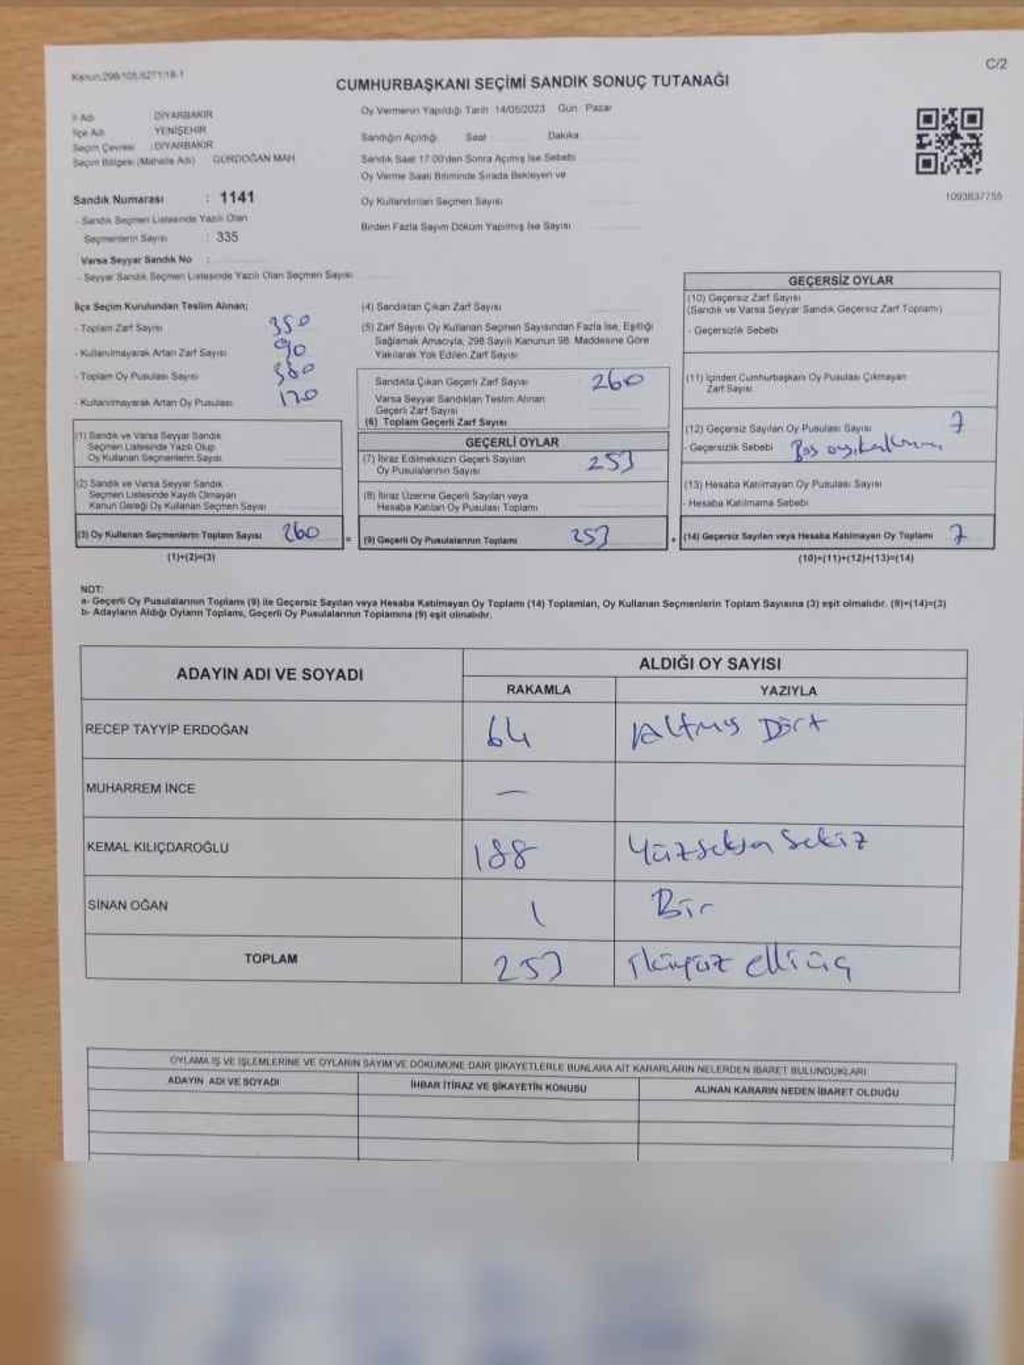 Kanun:298/105,6271/18-1
C/2
CUMHURBAŞKANI SEÇİMİ SANDIK SONUÇ TUTANAĞI
İl Adı : DİYARBAKIR
İlçe Adı : YENİŞEHİR
Seçim Çevresi : DİYARBAKIR
Seçim Bölgesi (Mahalle Adı) : GÜRDOĞAN MAH.
Sandık Numarası : 1141
- Sandık Seçmen Listesinde Yazılı Olan
Seçmenlerin Sayısı : 335
Varsa Seyyar Sandık No :
- Seyyar Sandık Seçmen Listesinde Yazılı Olan Seçmen Sayısı
Oy Vermenin Yapıldığı Tarih 14/05/2023 Gün Pazar
Sandığın Açıldığı Saat Dakika
Sandık Saat 17.00'den Sonra Açılmış İse Sebebi
Oy Verme Saati Bitiminde Sırada Bekleyen ve
Oy Kullandırılan Seçmen Sayısı
Birden Fazla Sayım Döküm Yapılmış İse Sayısı
1093837755
İlçe Seçim Kurulundan Teslim Alınan;
- Toplam Zarf Sayısı 350
- Kullanılmayarak Artan Zarf Sayısı 90
- Toplam Oy Pusulası Sayısı 380
- Kullanılmayarak Artan Oy Pusulası 120
(1) Sandık ve Varsa Seyyar Sandık
Seçmen Listesinde Yazılı Olup
Oy Kullanan Seçmenlerin Sayısı
(2) Sandık ve Varsa Seyyar Sandık
Seçmen Listesinde Kayıtlı Olmayan
Kanun Gereği Oy Kullanan Seçmen Sayısı
(3) Oy Kullanan Seçmenlerin Toplam Sayısı 260
(1)+(2)=(3)
(4) Sandıktan Çıkan Zarf Sayısı
(5) Zarf Sayısı Oy Kullanan Seçmen Sayısından Fazla İse, Eşitliği
Sağlamak Amacıyla, 298 Sayılı Kanunun 98. Maddesine Göre
Yakılarak Yok Edilen Zarf Sayısı
Sandıkta Çıkan Geçerli Zarf Sayısı 260
Varsa Seyyar Sandıktan Teslim Alınan
Geçerli Zarf Sayısı
(6) Toplam Geçerli Zarf Sayısı
GEÇERLİ OYLAR
(7) İtiraz Edilmeksizin Geçerli Sayılan
Oy Pusulalarının Sayısı 253
(8) İtiraz Üzerine Geçerli Sayılan veya
Hesaba Katılan Oy Pusulası Toplamı
= (9) Geçerli Oy Pusulalarının Toplamı 253
GEÇERSİZ OYLAR
(10) Geçersiz Zarf Sayısı
(Sandık ve Varsa Seyyar Sandık Geçersiz Zarf Toplamı)
- Geçersizlik Sebebi
(11) İçinden Cumhurbaşkanı Oy Pusulası Çıkmayan
Zarf Sayısı
(12) Geçersiz Sayılan Oy Pusulası Sayısı 7
- Geçersizlik Sebebi Boş
(13) Hesaba Katılmayan Oy Pusulası Sayısı
- Hesaba Katılmama Sebebi
+ (14) Geçersiz Sayılan veya Hesaba Katılmayan Oy Toplamı 7
(10)+(11)+(12)+(13)=(14)
NOT:
a- Geçerli Oy Pusulalarının Toplamı (9) ile Geçersiz Sayılan veya Hesaba Katılmayan Oy Toplamı (14) Toplamları, Oy Kullanan Seçmenlerin Toplam Sayısına (3) eşit olmalıdır. (9)+(14)=(3)
b- Adayların Aldığı Oyların Toplamı, Geçerli Oy Pusulalarının Toplamına (9) eşit olmalıdır.
ADAYIN ADI VE SOYADI ALDIĞI OY SAYISI
RAKAMLA YAZIYLA
RECEP TAYYİP ERDOĞAN 64 Altmış Dört
MUHARREM İNCE —
KEMAL KILIÇDAROĞLU 188 Yüzseksen Sekiz
SİNAN OĞAN 1 Bir
TOPLAM 253 İkiyüz elli üç
OYLAMA İŞ VE İŞLEMLERİNE VE OYLARIN SAYIM VE DÖKÜMÜNE DAİR ŞİKAYETLERLE BUNLARA AİT KARARLARIN NELERDEN İBARET BULUNDUKLARI
ADAYIN ADI VE SOYADI İHBAR İTİRAZ VE ŞİKAYETİN KONUSU ALINAN KARARIN NEDEN İBARET OLDUĞU